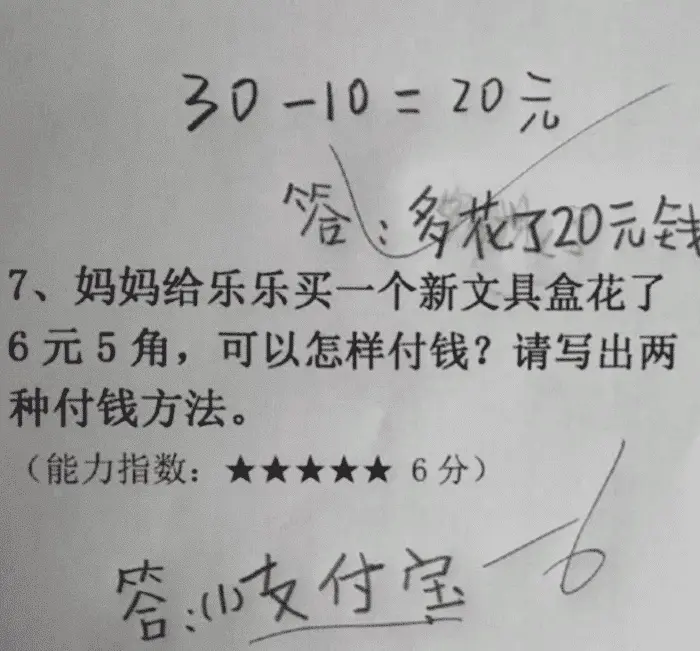 30-10=20元
答:多花了20元钱
7、妈妈给乐乐买一个新文具盒花了
6元5角，可以怎样付钱？请写出两
种付钱方法。
（能力指数：★★★★★ 6分）
-6
答:(1)支付宝